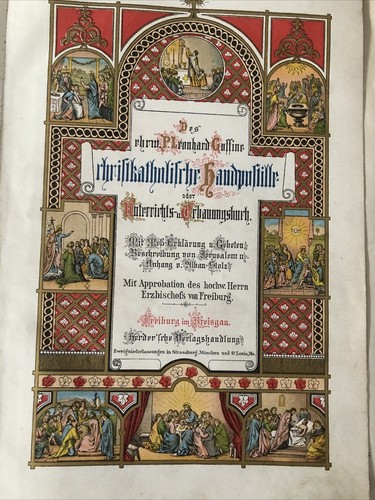 Des
ehrw. P. Leonhard Goffine
christkatholische Handpostille
oder
Unterrichts- u. Erbauungsbuch.
Mit Meß-Erklärung u. Gebeten,
Beschreibung von Jerusalem u.
Anhang v. Alban Stolz.
Mit Approbation des hochw. Herrn
Erzbischofs von Freiburg.
Freiburg im Breisgau.
Herder'sche Verlagshandlung
Zweigniederlassungen in Strassburg, München und St. Louis, Mo.